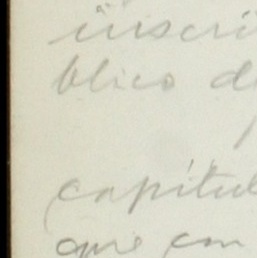 inscri
blico d
capítul
que con